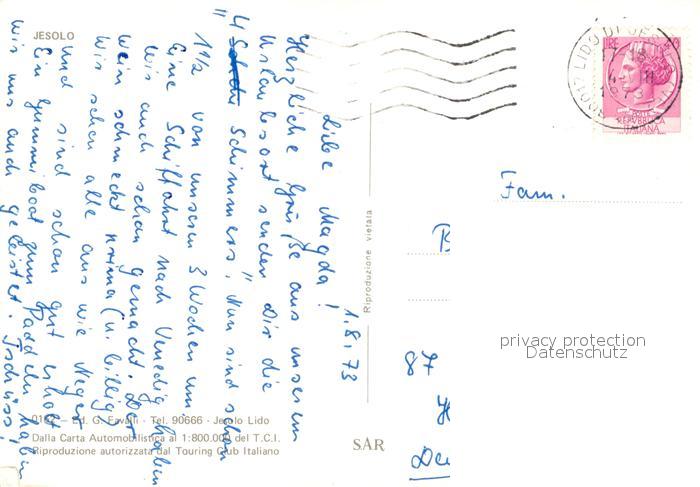 JESOLO
1.8.73
Liebe Magda!
Herzliche Grüße aus unserem
Urlaubsort senden Dir die
"4 Schimmers". Nun sind schon
1 1/2 von unseren 3 Wochen um.
Eine Schiffahrt nach Venedig haben
wir auch schon gemacht. Der
Wein schmeckt prima (u. billig).
Wir sehen alle aus wie Neger
und sind schon gut erholt.
Ein Gummiboot zum Paddeln haben
wir uns auch geleistet. Tschüss!
Fam.
B
87
H
SAR
Riproduzione vietata
Ed. G. Tel. 90666 - Jesolo Lido
Dalla Carta Automobilistica al 1:800.000 del T.C.I.
Riproduzione autorizzata dal Touring Club Italiano
LIRE
POSTE
REPUBBLICA
ITALIANA
30017 LIDO DI JESOLO
privacy protection
Datenschutz